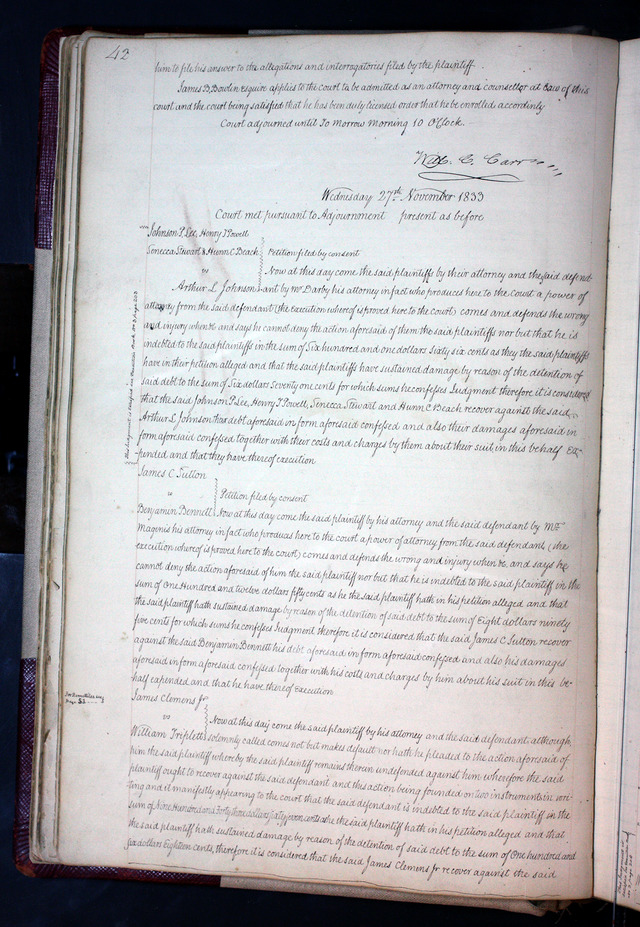 42
him to file his answer to the allegations and interrogatories filed by the plaintiff
James B Bowlin Esquire applies to the court to be admitted as an attorney and counsellor at Law of this
court and the court being satisfied that he has been duly licensed order that he be enrolled accordingly
Court adjourned until To Morrow Morning 10 O'Clock.
Wm. C. Carr
Wednesday 27th November 1833
Court met pursuant to Adjournment present as before
Johnson P. Lee, Henry T Powell
Senecca Stewart & Hunn C. Beach Petition filed by consent
vs Now at this day come the said plaintiffs by their attorney and the said defend
Arthur L Johnson ant by Mr Darby his attorney in fact who produces here to the Court a power of
attorney from the said defendant (the execution whereof is proved here to the court) comes and defends the wrong
and injury when &c and says he cannot deny the action aforesaid of them the said plaintiffs nor but that he is
indebted to the said plaintiffs in the sum of Six hundred and one dollars Sixty six cents as they the said plaintiffs
have in their petition alleged and that the said plaintiffs have sustained damage by reason of the detention of
said debt to the sum of Six dollars Seventy one cents for which sums he confesses Judgment therefore it is considered
that the said Johnson P. Lee, Henry T Powell, Senecca Stewart and Hunn C Beach recover against the said
Arthur L. Johnson debt aforesaid in form aforesaid confessed and also their damages aforesaid in
form aforesaid confessed together with their costs and charges by them about their suit in this behalf Ex
pended and that they have thereof execution
James C Sutton
vs Petition filed by consent
Benjamin Bennett Now at this day come the said plaintiff by his attorney and the said defendant by Mr
Magenis his attorney in fact who produces here to the court a power of attorney from the said defendant, (the
execution whereof is proved here to the court) comes and defends the wrong and injury when &c. and says he
cannot deny the action aforesaid of him the said plaintiff nor but that he is indebted to the said plaintiff in the
sum of One Hundred and twelve dollars fifty cents as he the said plaintiff hath in his petition alleged and that
the said plaintiff hath sustained damage by reason of the detention of said debt to the sum of Eight dollars ninety
five cents for which sums he confesses Judgment therefore it is considered that the said James C Sutton recover
against the said Benjamin Bennett his debt aforesaid in form aforesaid confessed and also his damages
aforesaid in form aforesaid confessed together with his costs and charges by him about his suit in this be
half expended and that he have thereof Execution
James Clemens Jr
vs Now at this day come the said plaintiff by his attorney and the said defendant although
William Triplett solemnly called comes not but makes default nor hath he pleaded to the action aforesaid of
him the said plaintiff whereby the said plaintiff remains therein undefended against him wherefore the said
plaintiff ought to recover against the said defendant and this action being founded on two instruments in wri
ting and it manifestly appearing to the court that the said defendant is indebted to the said plaintiff in the
sum of Nine Hundred and forty three dollars cents as he the said plaintiff hath in his petition alleged and that
the said plaintiff hath sustained damage by reason of the detention of said debt to the sum of One hundred and
Six dollars Eighteen cents, therefore it is considered that the said James Clemens Jr recover against the said